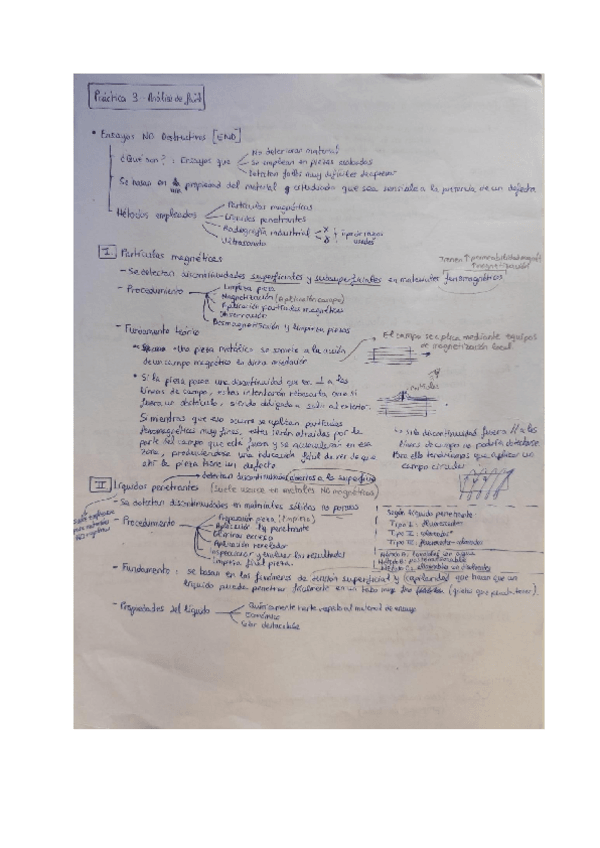 Práctica 3 - Análisis de
• Ensayos NO Destructivos [END]
¿Qué son? : Ensayos que
No deterioran material
Se emplean en piezas acabadas
Detectan fallos muy difíciles de
Se basan en propiedad del material que sea sensible a la presencia de un defecto
Métodos empleados
Partículas magnéticas
Líquidos penetrantes
Radiografía industrial X γ tipo de rayos usados
Ultrasonido
I Partículas magnéticas
Tienen ↑ permeabilidad
- Se detectan discontinuidades superficiales y subsuperficiales en materiales ferromagnéticos
- Procedimiento
Limpieza pieza
Magnetización (aplicación campo)
Aplicación partículas magnéticas
Observación
Desmagnetización y limpieza piezas
- Fundamento teórico
• Una pieza metálica se somete a la acción
de un campo magnético en dirección
→ El campo se aplica mediante equipos
de magnetización local.
• Si la pieza posee una discontinuidad que es ⊥ a las
líneas de campo, estas intentarán rebasarla como si
fuera un obstáculo, siendo obligadas a salir al exterior.
Si mientras que eso ocurre se aplican partículas
ferromagnéticas muy finas, estas serán atraídas por la
parte del campo que está fuera y se acumularán en esa
zona, produciéndose una indicación fácil de ver de que
ahí la pieza tiene un defecto
↳ si la discontinuidad fuera // a las
líneas de campo no podría detectarse.
Para ello tendríamos que aplicar un
campo circular
→ detectan discontinuidades abiertas a la superficie
II Líquidos penetrantes (suele usarse en metales NO magnéticos)
- Se detectan discontinuidades en materiales sólidos no porosos
- Procedimiento
Preparación pieza (limpieza)
Aplicación líq penetrante
Eliminar exceso
Aplicación revelador
Inspeccionar y evaluar los resultados
Limpieza final pieza.
Según líquido penetrante
Tipo I: fluorescentes
Tipo II: coloreados
Tipo III: fluorescentes-coloreados
Método A: lavables con agua
Método B: postemulsionable
Método C: eliminables con disolventes
- Fundamento : se basan en los fenómenos de tensión superficial y capilaridad que hacen que un
líquido pueda penetrar fácilmente en un
- Propiedades del líquido
Químicamente inerte respecto al material de ensayo
Económico
Color detectable